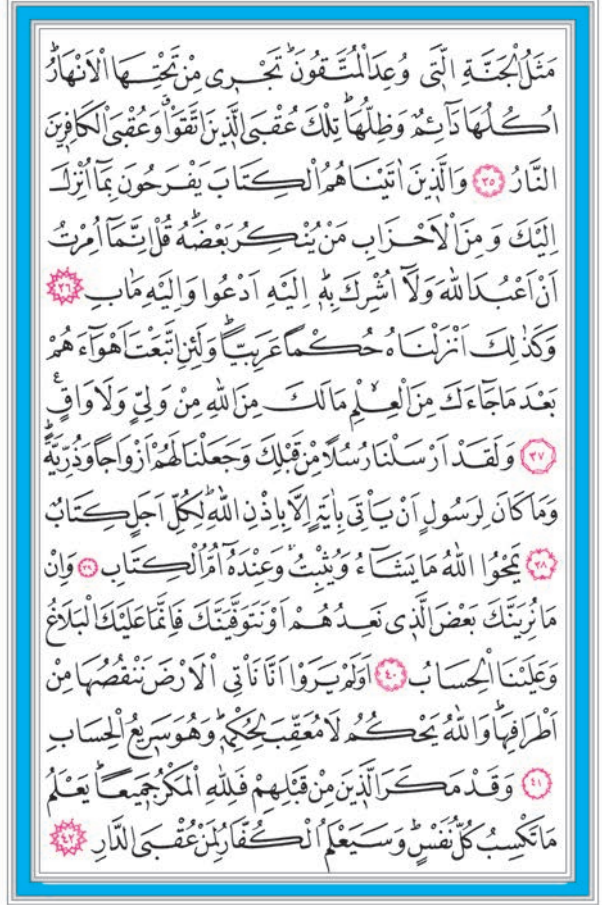 مَثَلُ الْجَنَّةِ الَّتٖي وُعِدَ الْمُتَّقُونَؕ تَجْرٖي مِنْ تَحْتِهَا الْاَنْهَارُؕ
اُكُلُهَا دَٓائِمٌ وَظِلُّهَاؕ تِلْكَ عُقْبَى الَّذٖينَ اتَّقَوْاۗ وَعُقْبَى الْكَافِرٖينَ
النَّارُ ﴿٣٥﴾ وَالَّذٖينَ اٰتَيْنَاهُمُ الْكِتَابَ يَفْرَحُونَ بِمَٓا اُنْزِلَ
اِلَيْكَ وَمِنَ الْاَحْزَابِ مَنْ يُنْكِرُ بَعْضَهُؕ قُلْ اِنَّمَٓا اُمِرْتُ
اَنْ اَعْبُدَ اللّٰهَ وَلَٓا اُشْرِكَ بِهٖؕ اِلَيْهِ اَدْعُوا وَاِلَيْهِ مَاٰبِ ﴿٣٦﴾
وَكَذٰلِكَ اَنْزَلْنَاهُ حُكْماً عَرَبِياًّؕ وَلَئِنِ اتَّبَعْتَ اَهْوَٓاءَهُمْ
بَعْدَ مَا جَٓاءَكَ مِنَ الْعِلْمِۙ مَا لَكَ مِنَ اللّٰهِ مِنْ وَلِيٍّ وَلَا وَاقٍࣖ
﴿٣٧﴾ وَلَقَدْ اَرْسَلْنَا رُسُلاً مِنْ قَبْلِكَ وَجَعَلْنَا لَهُمْ اَزْوَاجاً وَذُرِّيَّةًؕ
وَمَا كَانَ لِرَسُولٍ اَنْ يَأْتِيَ بِاٰيَةٍ اِلَّا بِاِذْنِ اللّٰهِؕ لِكُلِّ اَجَلٍ كِتَابٌ
﴿٣٨﴾ يَمْحُوا اللّٰهُ مَا يَشَٓاءُ وَيُثْبِتُۚ وَعِنْدَهُٓ اُمُّ الْكِتَابِ ﴿٣٩﴾ وَاِنْ
مَا نُرِيَنَّكَ بَعْضَ الَّذٖي نَعِدُهُمْ اَوْ نَتَوَفَّيَنَّكَ فَاِنَّمَا عَلَيْكَ الْبَلَاغُ
وَعَلَيْنَا الْحِسَابُ ﴿٤٠﴾ اَوَلَمْ يَرَوْا اَنَّا نَأْتِي الْاَرْضَ نَنْقُصُهَا مِنْ
اَطْرَافِهَاؕ وَاللّٰهُ يَحْكُمُ لَا مُعَقِّبَ لِحُكْمِهٖؕ وَهُوَ سَرٖيعُ الْحِسَابِ
﴿٤١﴾ وَقَدْ مَكَرَ الَّذٖينَ مِنْ قَبْلِهِمْ فَلِلّٰهِ الْمَكْرُ جَمٖيعاًؕ يَعْلَمُ
مَا تَكْسِبُ كُلُّ نَفْسٍؕ وَسَيَعْلَمُ الْكُفَّارُ لِمَنْ عُقْبَى الدَّارِ ﴿٤٢﴾